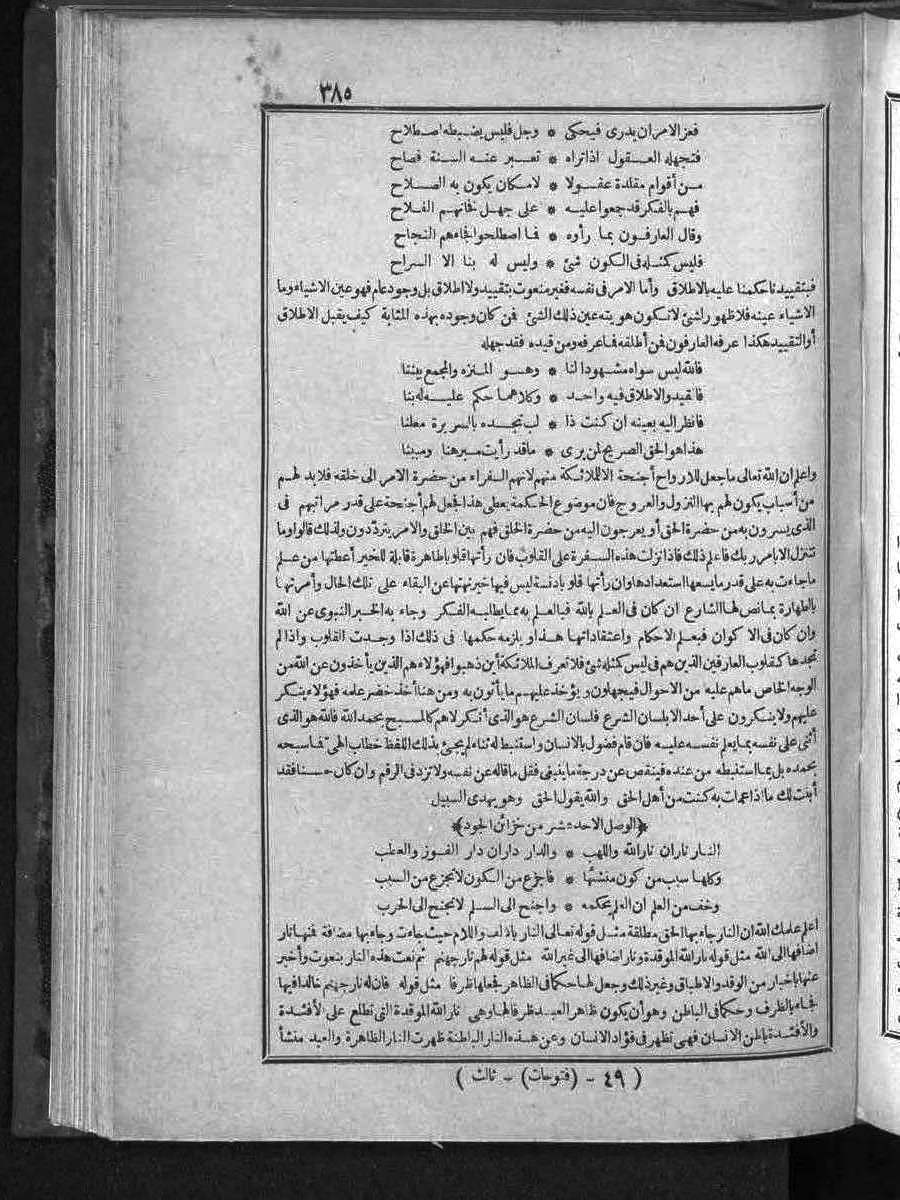 ٣٨٥
فعز الامر ان يدرى فيحكى * وجل فليس يضبطه اصطلاح
فتجهله العقول اذا تراه * تعبر عنه السنة فصاح
من أقوام مقلدة عقولا * لامكان يكون به الصلاح
فهم بالفكر قد جمعوا عليه * على جهل فخانهم الفلاح
وقال العارفون بما رأوه * فما اصطلحوا فجاءهم النجاح
فليس كمثله فى الكون شئ * وليس له بنا الا السراح
فبتقييدنا حكمنا عليه بالاطلاق وأما الامر فى نفسه فغير منعوت بتقييد ولا اطلاق بل وجود عام فهو عين الاشياء وما
الاشياء عينه فلا ظهور لشئ لا تكون هويته عين ذلك الشئ فمن كان وجوده بهذه المثابة كيف يقبل الاطلاق
أو التقييد هكذا عرفه العارفون فمن أطلقه فما عرفه ومن قيده فقد جهله
فالله ليس سواه مشهودا لنا * وهو المنزه والمجمع بيننا
فالقيد والاطلاق فيه واحد * وكلاهما حكم عليه له بنا
فانظر اليه بعينه ان كنت ذا * لب تجده بالسريرة معلنا
هذا هو الحق الصريح لمن يرى * ماقد رأيت مبرهنا ومبينا
واعلم ان الله تعالى ما جعل للارواح أجنحة الا للملائكة منهم لانهم السفراء من حضرة الامر الى خلقه فلا بد لهم
من أسباب يكون لهم بها النزول والعروج فان موضوع الحكمة يعطى هذا فجعل لهم أجنحة على قدر مراتبهم فى
الذى يسرون به من حضرة الحق أو يعرجون اليه من حضرة الخلق فهم بين الخلق والامر يترددون ولذلك قالوا وما
نتنزل الا بامر ربك فاعلم ذلك فاذا نزلت هذه السفرة على القلوب فان رأتها قلوبا طاهرة قابلة للخير أعطتها من علم
ما جاءت به على قدر ما يسعها استعدادها وان رأتها قلوبا دنسة ليس فيها خير نهتها عن البقاء على تلك الحال وأمرتها
بالطهارة بما نص لها الشارع ان كان فى العلم بالله فبالعلم به مما يطلبه الفكر وجاء به الخبر النبوى عن الله
وان كان فى الاكوان فبعلم الاحكام واعتقاداتها هذا وبلزمه حكمها فى ذلك اذا وجدت القلوب واذا لم
تجدها كقلوب العارفين الذين هم فى ليس كمثله شئ فلا تعرف الملائكة أين ذهبوا فهؤلاء هم الذين يأخذون عن الله من
الوجه الخاص ماهم عليه من الاحوال فيجهلون ويؤخذ عليهم ما يأتون به ومن هنا أخذ خضر علمه فهؤلاء ينكر
عليهم ولا ينكرون على أحد الا بلسان الشرع فلسان الشرع هو الذى أنكر لاهم كالمسبح بحمد الله فالله هو الذى
أثنى على نفسه بما يعلم نفسه عليه فان قام فضول بالانسان واستنبط له ثناء لم يجئ بذلك اللفظ خطاب الهى فما سبحه
بحمده بل بما استنبطه من عنده فينقص عن درجة ما ينبغى فقل ما قاله عن نفسه ولا تزد فى الرقم وان كان حسنا فقد
أبنت لك ما اذا عملت به كنت من أهل الحق والله يقول الحق وهو يهدى السبيل
﴿الوصل الاحد عشر من خزائن الجود﴾
النار ناران نار الله واللهب * والدار داران دار الفوز والعطب
وكلها سبب من كون منشئها * فاجزع من الكون لا تجزع من السبب
وخف من العلم ان العلم يحكمه * واجنح الى السلم لا تجنح الى الحرب
اعلم علمك الله ان النار جاء بها الحق مطلقة مثل قوله تعالى النار بالالف واللام حيث جاءت وجاء بها مضافة فمنها نار
اضافها الى الله مثل قوله نار الله الموقدة ونار اضافها الى غير الله مثل قوله لهم نار جهنم ثم نعت هذه النار بنعوت وأخبر
عنها باخبار من الوقد والاطباق وغير ذلك وجعل لها حكما فى الظاهر فجعلها ظرفا مثل قوله فان له نار جهنم خالدا فيها
فجاء بالظرف وحكما فى الباطن وهو أن يكون ظاهر العبد ظرفا لها وهى نار الله الموقدة التى تطلع على الأفئدة
والأفئدة باطن الانسان فهى تظهر فى فؤاد الانسان وعن هذه النار الباطنة ظهرت النار الظاهرة والعبد منشأ
( ٤٩ - (فتوحات) - ثالث )